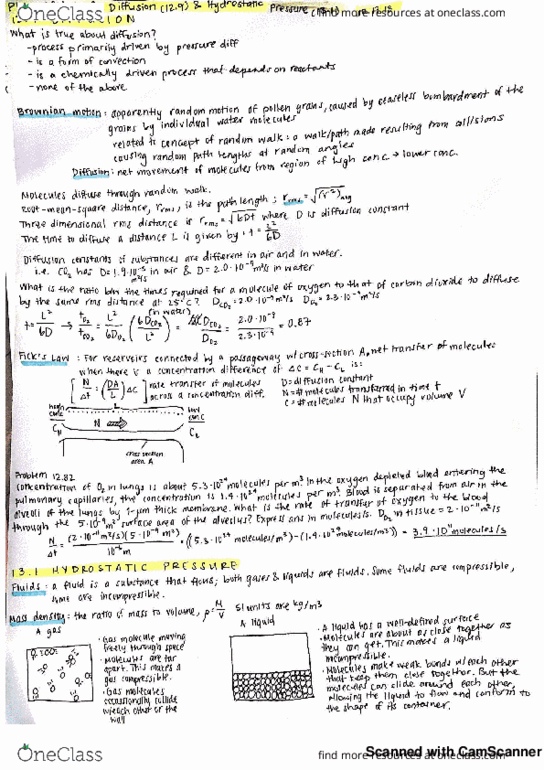 OneClass
find more resources at oneclass.com
Diffusion (12.9) & Hydrostatic Pressure
What is true about diffusion?
- process primarily driven by pressure diff
- is a form of convection
- is a chemically driven process that depends on reactants
- none of the above
Brownian motion: apparently random motion of pollen grains, caused by ceaseless bombardment of the
grains by individual water molecules
related to concept of random walk: a walk/path made resulting from collisions
causing random path lengths at random angles
Diffusion: net movement of molecules from region of high conc. → lower conc.
Molecules diffuse through random walk.
root-mean-square distance, rrms, is the path length; rrms = √(r²)avg
Three dimensional rms distance is rrms = √6Dt where D is diffusion constant
The time to diffuse a distance L is given by: t = L²/6D
Diffusion constants of substances are different in air and in water.
i.e. CO₂ has D = 1.9·10⁻⁵ m²/s in air & D = 2.0·10⁻⁹ m²/s in water
(in water)
What is the ratio btwn the times required for a molecule of oxygen to that of carbon dioxide to diffuse
by the same rms distance at 25°C? DCO₂ = 2.0·10⁻⁹ m²/s DO₂ = 2.3·10⁻⁹ m²/s
t = L²/6D → tO₂/tCO₂ = L²/6DO₂ (6DCO₂/L²) = DCO₂/DO₂ = 2.0·10⁻⁹/2.3·10⁻⁹ = 0.87
Fick's Law: For reservoirs connected by a passageway w/ cross-section A, net transfer of molecules
when there is a concentration difference of ΔC = CH - CL is:
[N/Δt = (DA/L) ΔC] rate transfer of molecules
across a concentration diff.
D = diffusion constant
N = # molecules transferred in time t
C = # molecules N that occupy volume V
high conc
CH
N →
L
low conc
CL
cross section
area A
Problem 12.82
Concentration of O₂ in lungs is about 5.3·10²⁴ molecules per m³. In the oxygen depleted blood entering the
pulmonary capillaries, the concentration is 1.4·10²⁴ molecules per m³. Blood is separated from air in the
alveoli of the lungs by 1-μm thick membrane. What is the rate of transfer of oxygen to the blood
through the 5·10⁻⁹ m² surface area of the alveolus? Express ans in molecules/s. DO₂ in tissue = 2·10⁻¹¹ m²/s
N/Δt = (2·10⁻¹¹ m²/s)(5·10⁻⁹ m²)/10⁻⁶ m · ((5.3·10²⁴ molecules/m³) - (1.4·10²⁴ molecules/m³)) = 3.9·10¹¹ molecules/s
13.1 HYDROSTATIC PRESSURE
Fluids: a fluid is a substance that flows; both gases & liquids are fluids. Some fluids are compressible,
some are incompressible.
Mass density: the ratio of mass to volume, ρ = M/V SI units are kg/m³
A gas
· Gas molecule moving
freely through space
· Molecules are far
apart. This makes a
gas compressible.
· Gas molecules
occasionally collide
w/ each other or the
wall
A liquid
· A liquid has a well-defined surface
· Molecules are about as close together as
they can get. This makes a liquid
incompressible.
· Molecules make weak bonds w/ each other
that keep them close together. But the
molecules can slide around each other,
allowing the liquid to flow and conform to
the shape of its container.
Scanned with CamScanner
OneClass
find more resources at oneclass.com